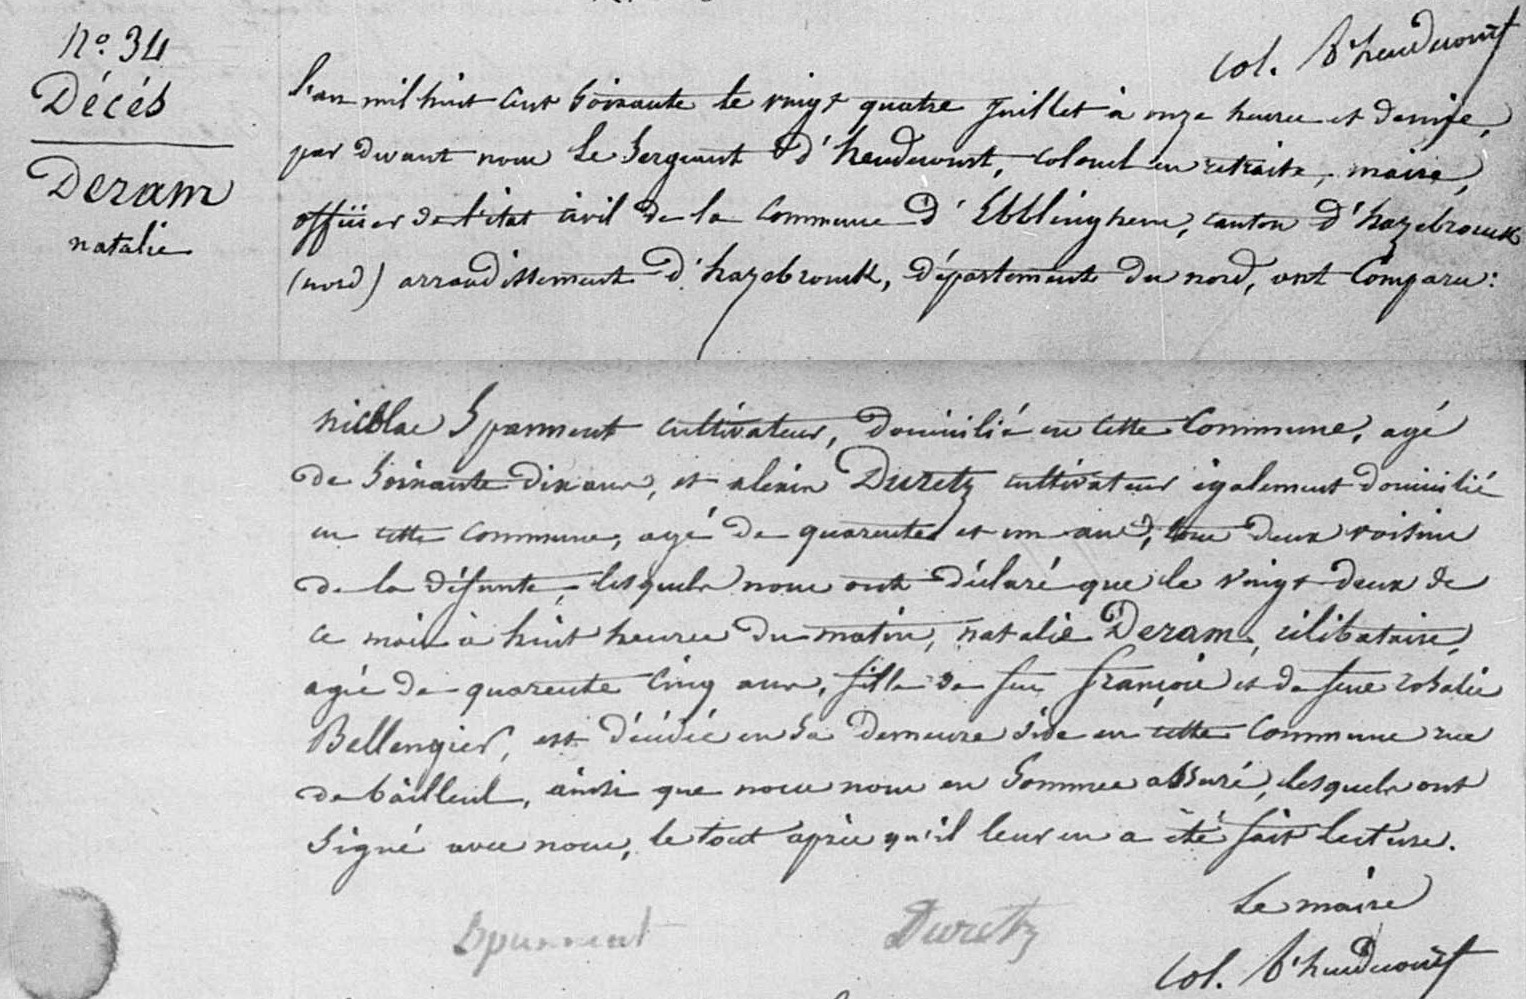 N.º 34
Décés
Deram
natalie
col. d'heudicourt
L'an mil huit cent soixante le vingt quatre Juillet à onze heures et demie,
par devant nous Le Sergeant d'hendecourt, colonel en retraite, maire,
officier de l'état civil de la commune d'Ebblinghem, canton d'hazebrouck
(nord) arrondissement d'hazebrouck, département du nord, ont comparu:
nicolas Sparment cultivateur, domicilié en cette commune, agé
de soixante dix ans, et alexis Duretz cultivateur également domicilié
en cette commune, agé de quarente et un ans, tous deux voisins
de la défunte, lesquels nous ont déclaré que le vingt deux de
ce mois à huit heures du matin, natalie Deram, célibataire,
agée de quarente cinq ans, fille de feu françois et de feue rosalie
Bellengier, est décédée en sa demeure side en cette commune rue
de bailleul, ainsi que nous nous en sommes assuré, lesquels ont
signé avec nous, le tout après qu'il leur en a été fait lecture.
Le maire
Sparment Duretz
col. d'hendecourt